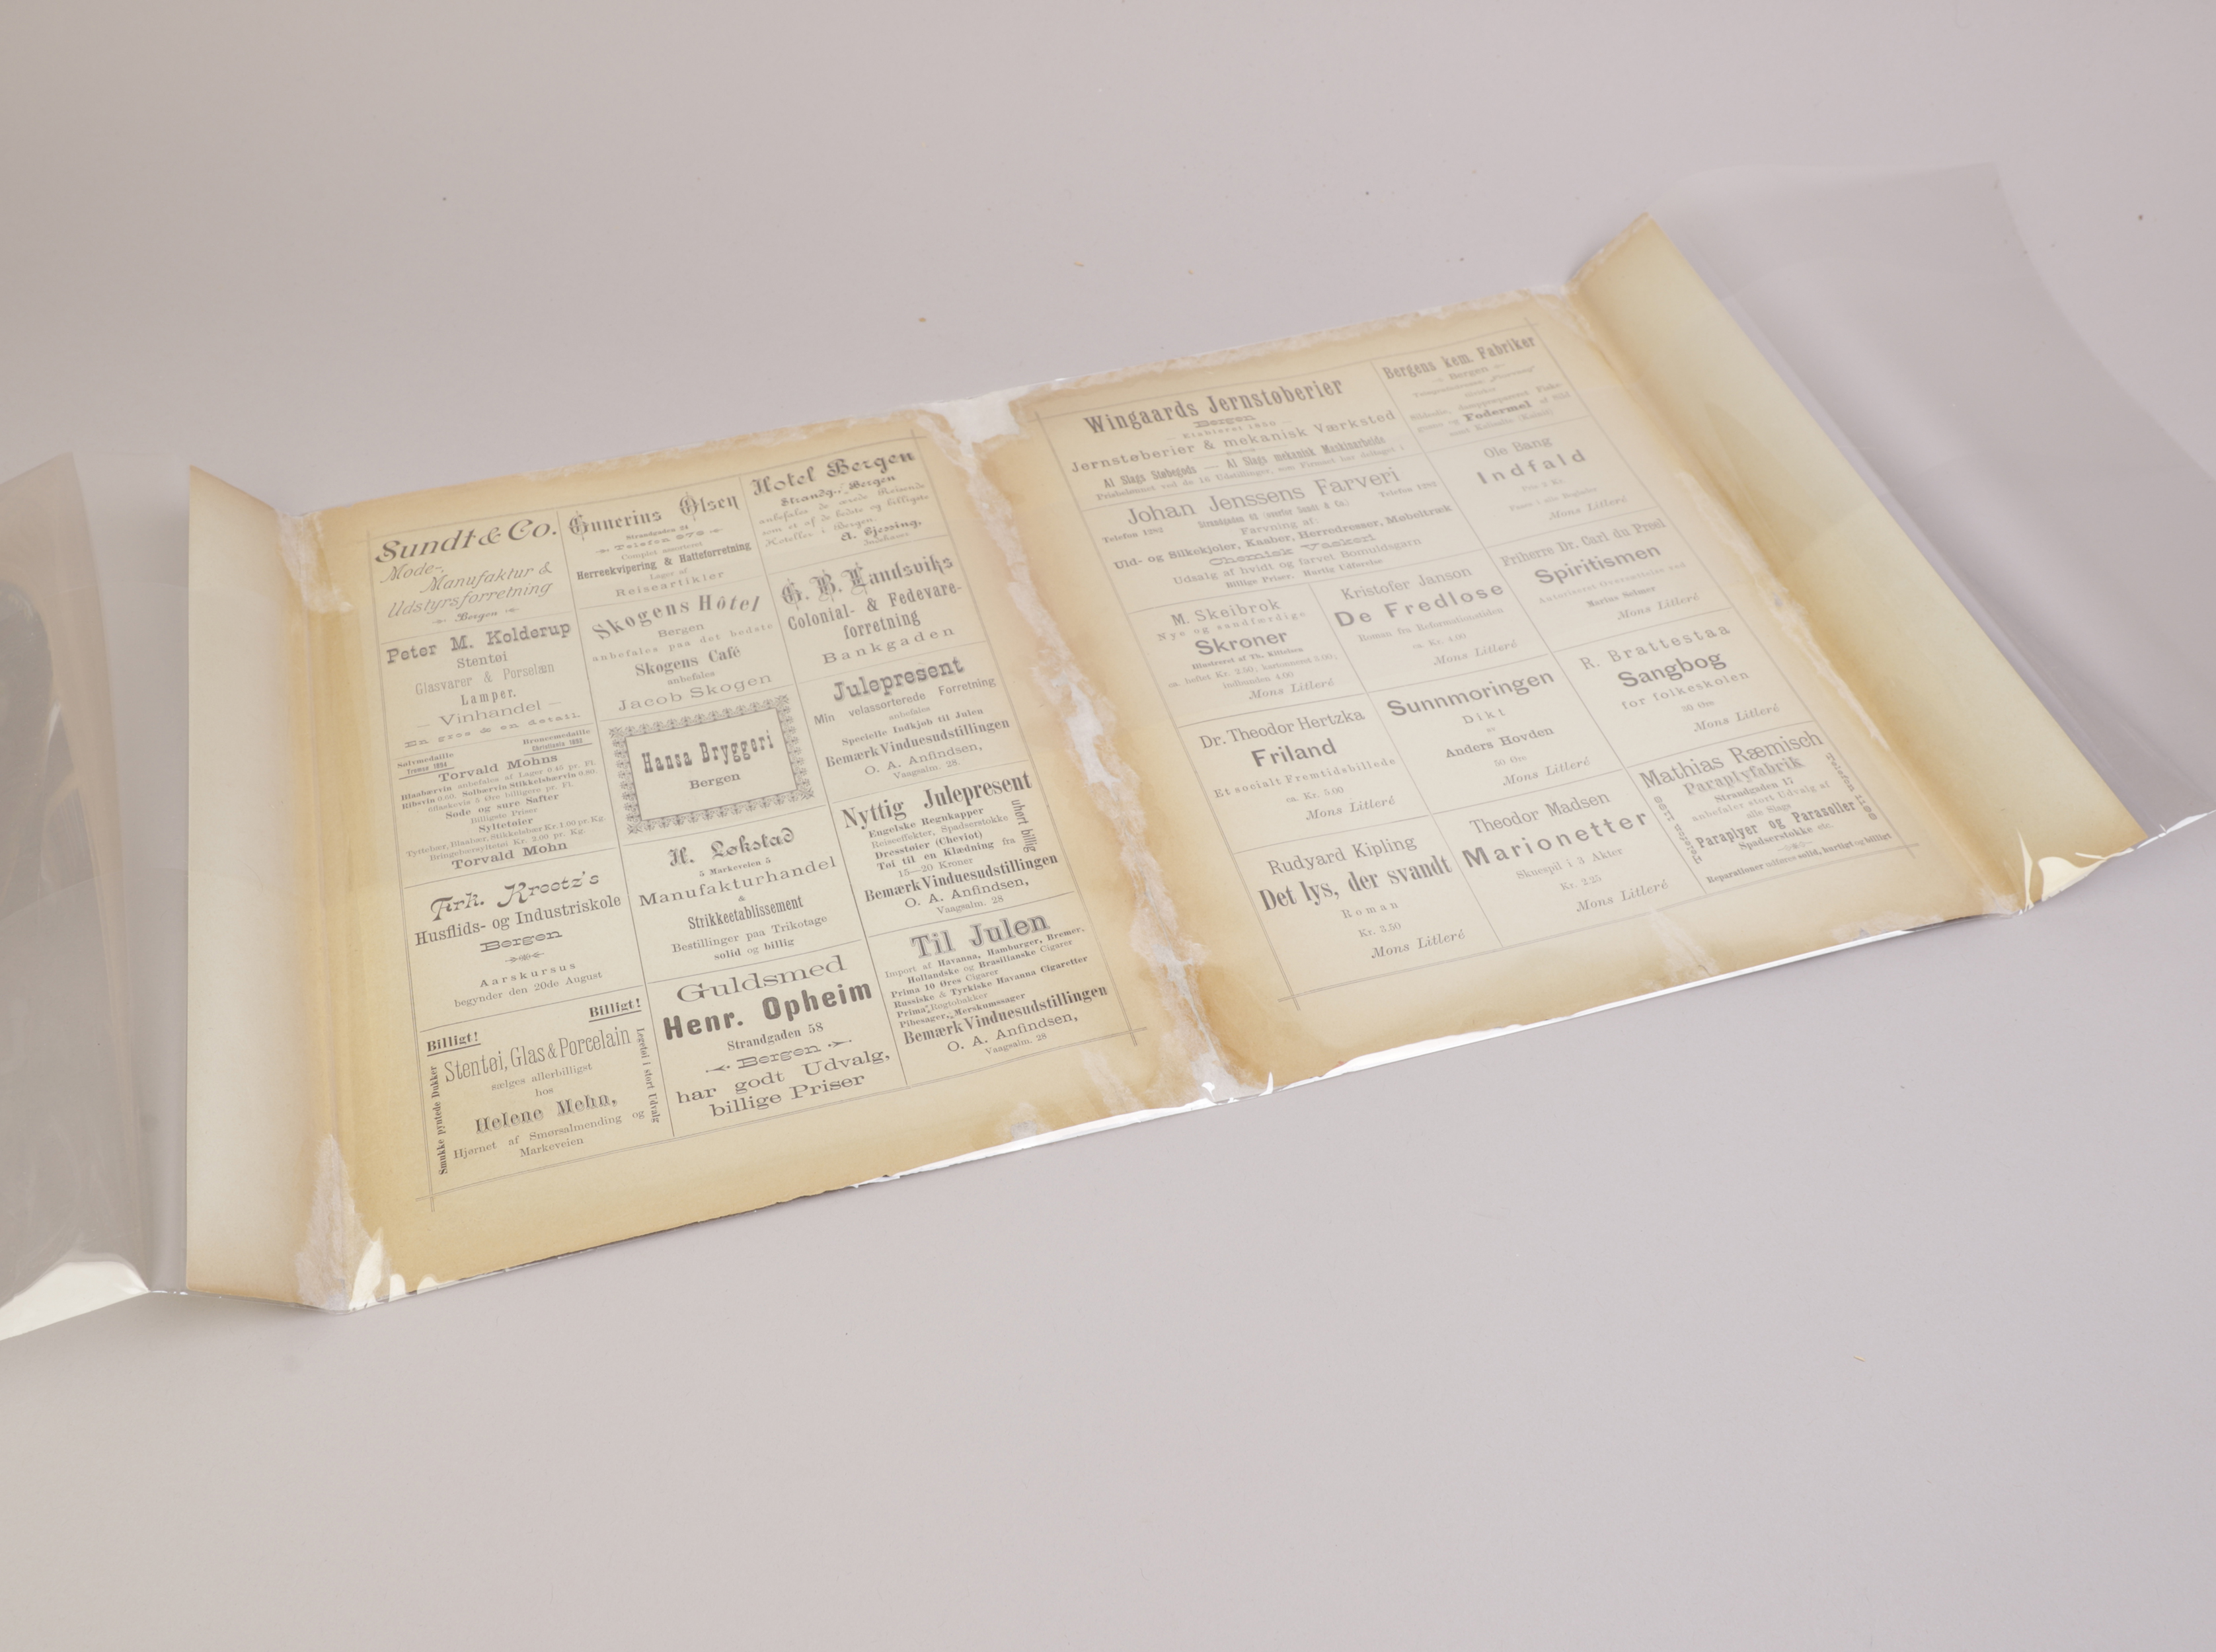 Sundt & Co.
Mode-,
Manufaktur &
Udstyrsforretning
Bergen
Peter M. Kolderup
Stentøi
Glasvarer & Porselæn
Lamper.
— Vinhandel —
En gros & en detail.
Sølvmedaille
Tromsø 1894
Bronzemedaille
Torvald Mohns
Blaabærvin anbefales af Lager 0.45 pr. Fl.
Ribsvin 0.60. Solbærvin Stikkelsbærvin 0.80.
Søde og sure Safter
Billigste Priser
Syltetøier
Tyttebær, Blaabær, Stikkelsbær Kr. 1.00 pr. Kg.
Bringebærsyltetøi Kr. 2.00 pr. Kg.
Torvald Mohn
Frk. Kreetz's
Husflids- og Industriskole
Bergen
Aarskursus
begynder den 20de August
Billigt!
Billigt!
Smukke pyntede Dukker
Stentøi, Glas & Porcelain
sælges allerbilligst
hos
Helene Mehn,
Hjørnet af Smørsalmending og
Markeveien
Legetøi i stort Udvalg
Gunerius Olsen
Strandgaden 21
Telefon 979
Complet assorteret
Herreekvipering & Hatteforretning
Lager af
Reiseartikler
Skogens Hôtel
Bergen
anbefales paa det bedste
Skogens Café
anbefales
Jacob Skogen
Hansa Bryggeri
Bergen
H. Løkstad
5 Markeveien 5
Manufakturhandel
&
Strikkeetablissement
Bestillinger paa Trikotage
solid og billig
Guldsmed
Henr. Opheim
Strandgaden 58
Bergen
har godt Udvalg,
billige Priser
Hotel Bergen
Strandg., Bergen
anbefales de ærede Reisende
som et af de bedste og billigste
Hoteller i Bergen.
A. Gjessing,
G. B. Landsviks
Colonial- & Fedevare-
forretning
Bankgaden
Julepresent
Min velassorterede Forretning
anbefales
Specielle Indkjøb til Julen
Bemærk Vinduesudstillingen
O. A. Anfindsen,
Vaagsalm. 28.
Nyttig Julepresent
Engelske Regnkapper
Reiseeffekter, Spadserstokke
Dresstøier (Cheviot)
Tøi til en Klædning fra
15—20 Kroner
uhørt billig
Bemærk Vinduesudstillingen
O. A. Anfindsen,
Vaagsalm. 28
Til Julen
Import af Havanna, Hamburger, Bremer,
Hollandske og Brasilianske Cigarer
Prima 10 Øres Cigarer
Russiske & Tyrkiske Havanna Cigaretter
Prima Røgtobakker
Pibesager, Merskumssager
Bemærk Vinduesudstillingen
O. A. Anfindsen,
Vaagsalm. 28
Wingaards Jernstøberier
Bergen
— Etableret 1850 —
Jernstøberier & mekanisk Værksted
Al Slags Støbegods — Al Slags mekanisk Maskinarbeide
Prisbelønnet ved de 16 Udstillinger, som Firmaet har deltaget i
Bergens kem. Fabriker
Bergen
Fodermel
Johan Jenssens Farveri
Telefon 1292
Telefon 1292
Farvning af:
Uld- og Silkekjoler, Kaaber, Herredresser, Møbeltræk
Chemisk Vaskeri
Udsalg af hvidt og farvet Bomuldsgarn
Billige Priser. Hurtig Udførelse
Ole Bang
Indfald
Pris 2 Kr.
Faaes i alle Boglader
Mons Litleré
M. Skeibrok
Nye og sandfærdige
Skroner
Illustreret af Th. Kittelsen
ca. heftet Kr. 2.50, kartonneret 3.00;
indbunden 4.00
Mons Litleré
Kristofer Janson
De Fredløse
Roman fra Reformationstiden
ca. Kr. 4.00
Mons Litleré
Friherre Dr. Carl du Preel
Spiritismen
Autoriseret Oversættelse ved
Marius Selmer
Mons Litleré
Dr. Theodor Hertzka
Friland
Et socialt Fremtidsbillede
ca. Kr. 5.00
Mons Litleré
Sunnmoringen
Dikt
av
Anders Hovden
50 Øre
Mons Litleré
R. Brattestaa
Sangbog
for folkeskolen
50 Øre
Mons Litleré
Rudyard Kipling
Det lys, der svandt
Roman
Kr. 3.50
Mons Litleré
Theodor Madsen
Marionetter
Skuespil i 3 Akter
Kr. 2.25
Mons Litleré
Mathias Ræmisch
Paraplyfabrik
Strandgaden 17
anbefaler stort Udvalg af
alle Slags
Paraplyer og Parasoller
Spadserstokke etc.
Reparationer udføres solid, hurtigt og billigt